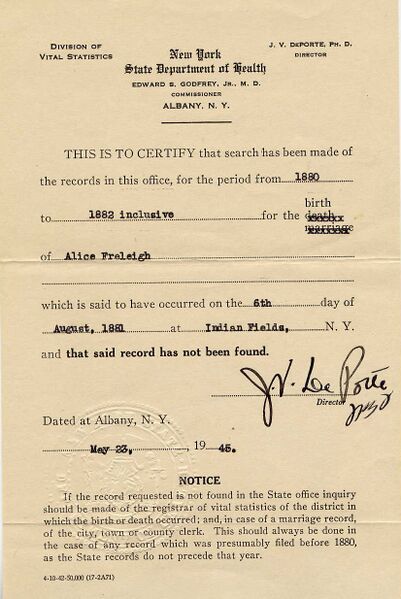 DIVISION OF
VITAL STATISTICS
New York
State Department of Health
EDWARD S. GODFREY, JR., M. D.
COMMISSIONER
ALBANY, N. Y.
J. V. DEPORTE, PH. D.
DIRECTOR
THIS IS TO CERTIFY that search has been made of
the records in this office, for the period from 1880
to 1882 inclusive for the birth
death
marriage
of Alice Freleigh
which is said to have occurred on the 6th day of
August, 1881 at Indian Fields, N. Y.
and that said record has not been found.
J. V. De Porte
Director
Dated at Albany, N. Y.
May 23, , 19 45.
NOTICE
If the record requested is not found in the State office inquiry
should be made of the registrar of vital statistics of the district in
which the birth or death occurred; and, in case of a marriage record,
of the city, town or county clerk. This should always be done in
the case of any record which was presumably filed before 1880,
as the State records do not precede that year.
4-10-42-50,000 (17-2A71)